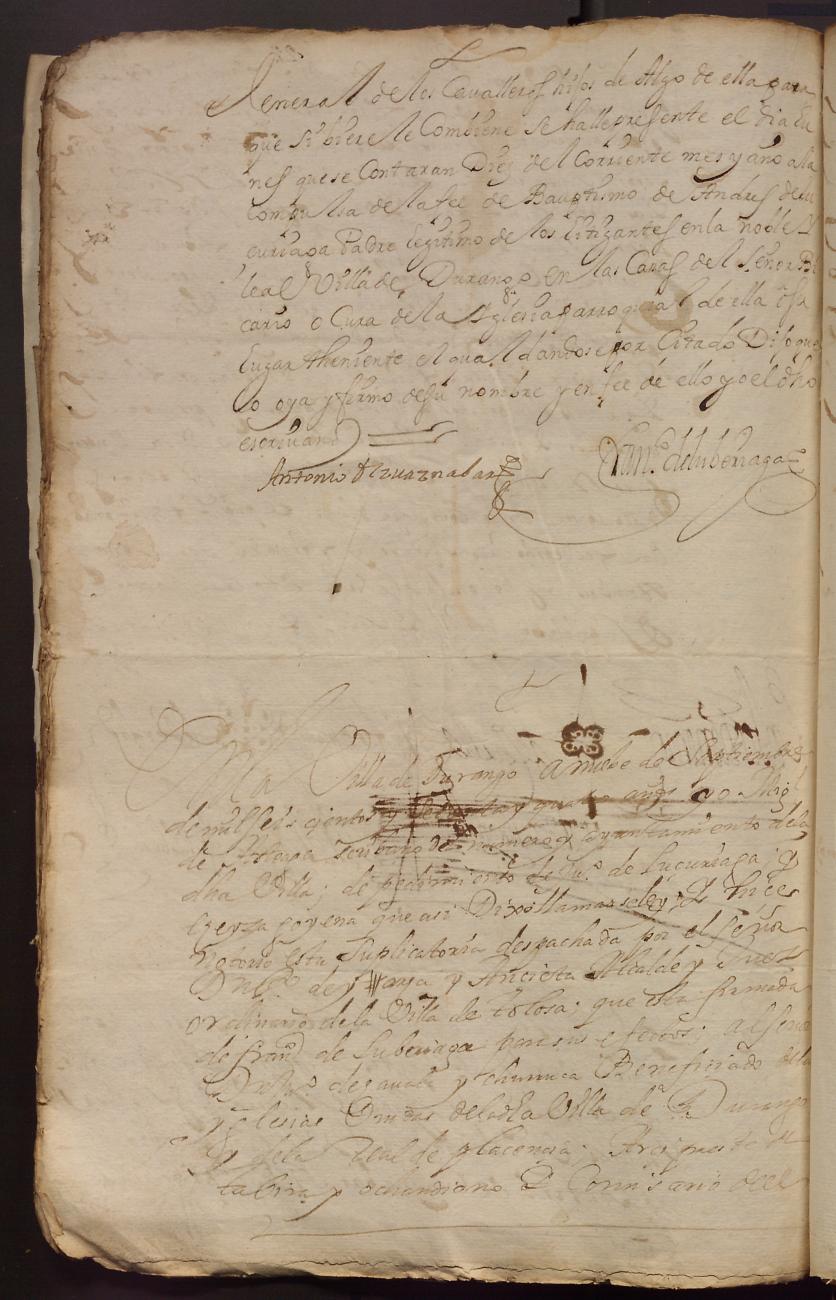 General de los Cavalleros hijos de Algo de ella para
que si biere le Combiene se halle presente el dia Lu
nes que se Contaran Diez del Corriente mes y año a la
Compulsa de la fee de Bauptismo de Andres de
curiaga Padre legitimo de los litigantes en la noble y
leal Villa de Durango en las Casas del Señor Bi
cario o Cura de la Yglesia parroquial de ella o su
lugar theniente el qual dandose por Citado Dijo que
lo oya y firmo de su nombre y en fee de ello yo el dho
escrivano
Antonio de Yzuaznabar Franco de luberiaga
En la Villa de Durango a nuebe de Septiembre
de mill seis cientos y setenta y quatro años yo Migl
de Scribano del numero y ayuntamiento de la
dha Villa; de pedimiento de Ju.o de Lucuriaga;
que asi Dixo llamarse ley hice
notorio esta Suplicatoria despachada por el señor
Dn de Yarza y Ancieta Alcalde y Juez
ordinario de la Villa de tolosa; que esta firmada
de Frano de Luberiaga para sus efectos; al señor
Dn de y Beneficiado de las
yglesias Unidas de la dha Villa de Durango
y dela Real de placencia. Arcipreste de
tabira y ochandiano Comisario del